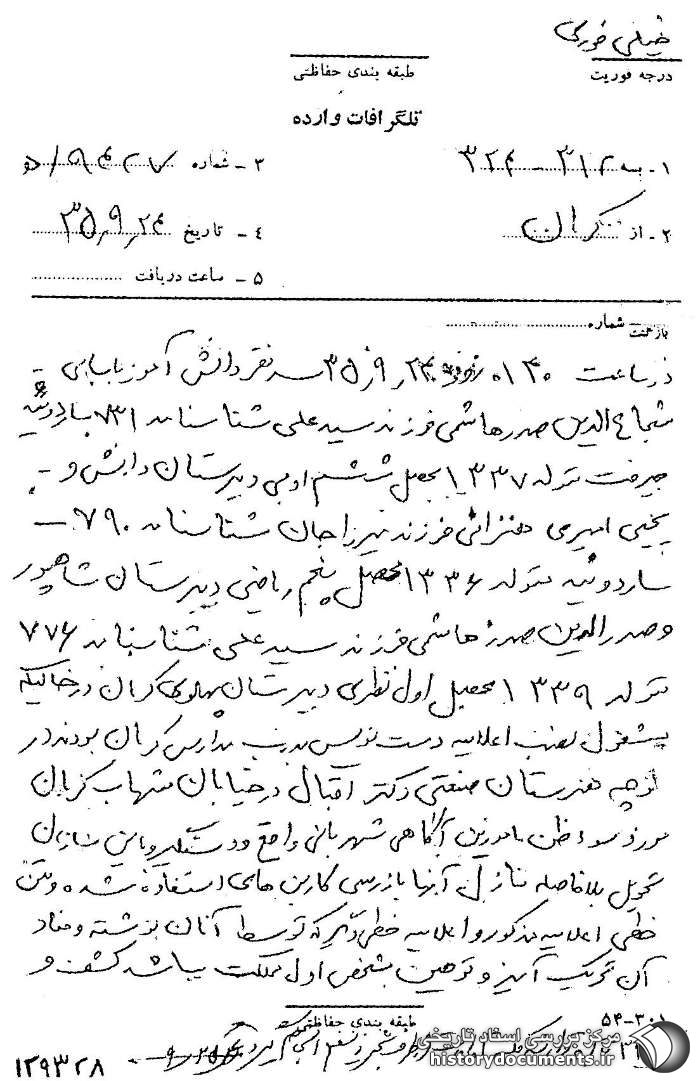 خیلی فوری
درجه فوریت
طبقه بندی حفاظتی
تلگرافات وارده
۱ - به ۳۱۲ - ۳۲۴
۳ - شماره ۹۴۲۷/
۲ - از کرمان
۴ - تاریخ ۳۵٫۹٫۲۴
۵ - ساعت دریافت
بازگشت شماره
در ساعت ۰۱۳۰ روز ۳۵٫۹٫ سه نفر دانش آموز باسامی -
شجاع الدین صدرهاشمی فرزند سیدعلی شناسنامه ۷۳۱ ساردوئیه
جیرفت متولد ۱۳۳۷ محصل ششم ادبی دبیرستان دانش و -
یحیی امیری فرزند میرزاجان شناسنامه ۷۹۰ -
ساردوئیه متولد ۱۳۳۶ محصل پنجم ریاضی دبیرستان شاهپور
و صدرالدین صدرهاشمی فرزند سیدعلی شناسنامه ۷۷۶
متولد ۱۳۳۹ محصل اول نظری دبیرستان پهلوی کرمان در حالیکه
مشغول نصب اعلامیه دست نویس بدرب مدارس کرمان بودند در
کوچه هنرستان صنعتی دکتر اقبال در خیابان شهاب کرمان
مورد سوءظن مامورین آگاهی شهربانی واقع و دستگیر و باین سازمان
تحویل بلافاصله منازل آنها بازرسی کاربن های استفاده شده و متن
خطی اعلامیه مذکور و اعلامیه خطی دیگر که توسط آنان نوشته و مفاد
آن تحریک آمیز و توهین بشخص اول مملکت میباشد کشف و
طبقه بندی حفاظتی
۵۴-۳۰۱
مرکز بررسی اسناد تاریخی
historydocuments.ir
۱۲۹۳۲۸